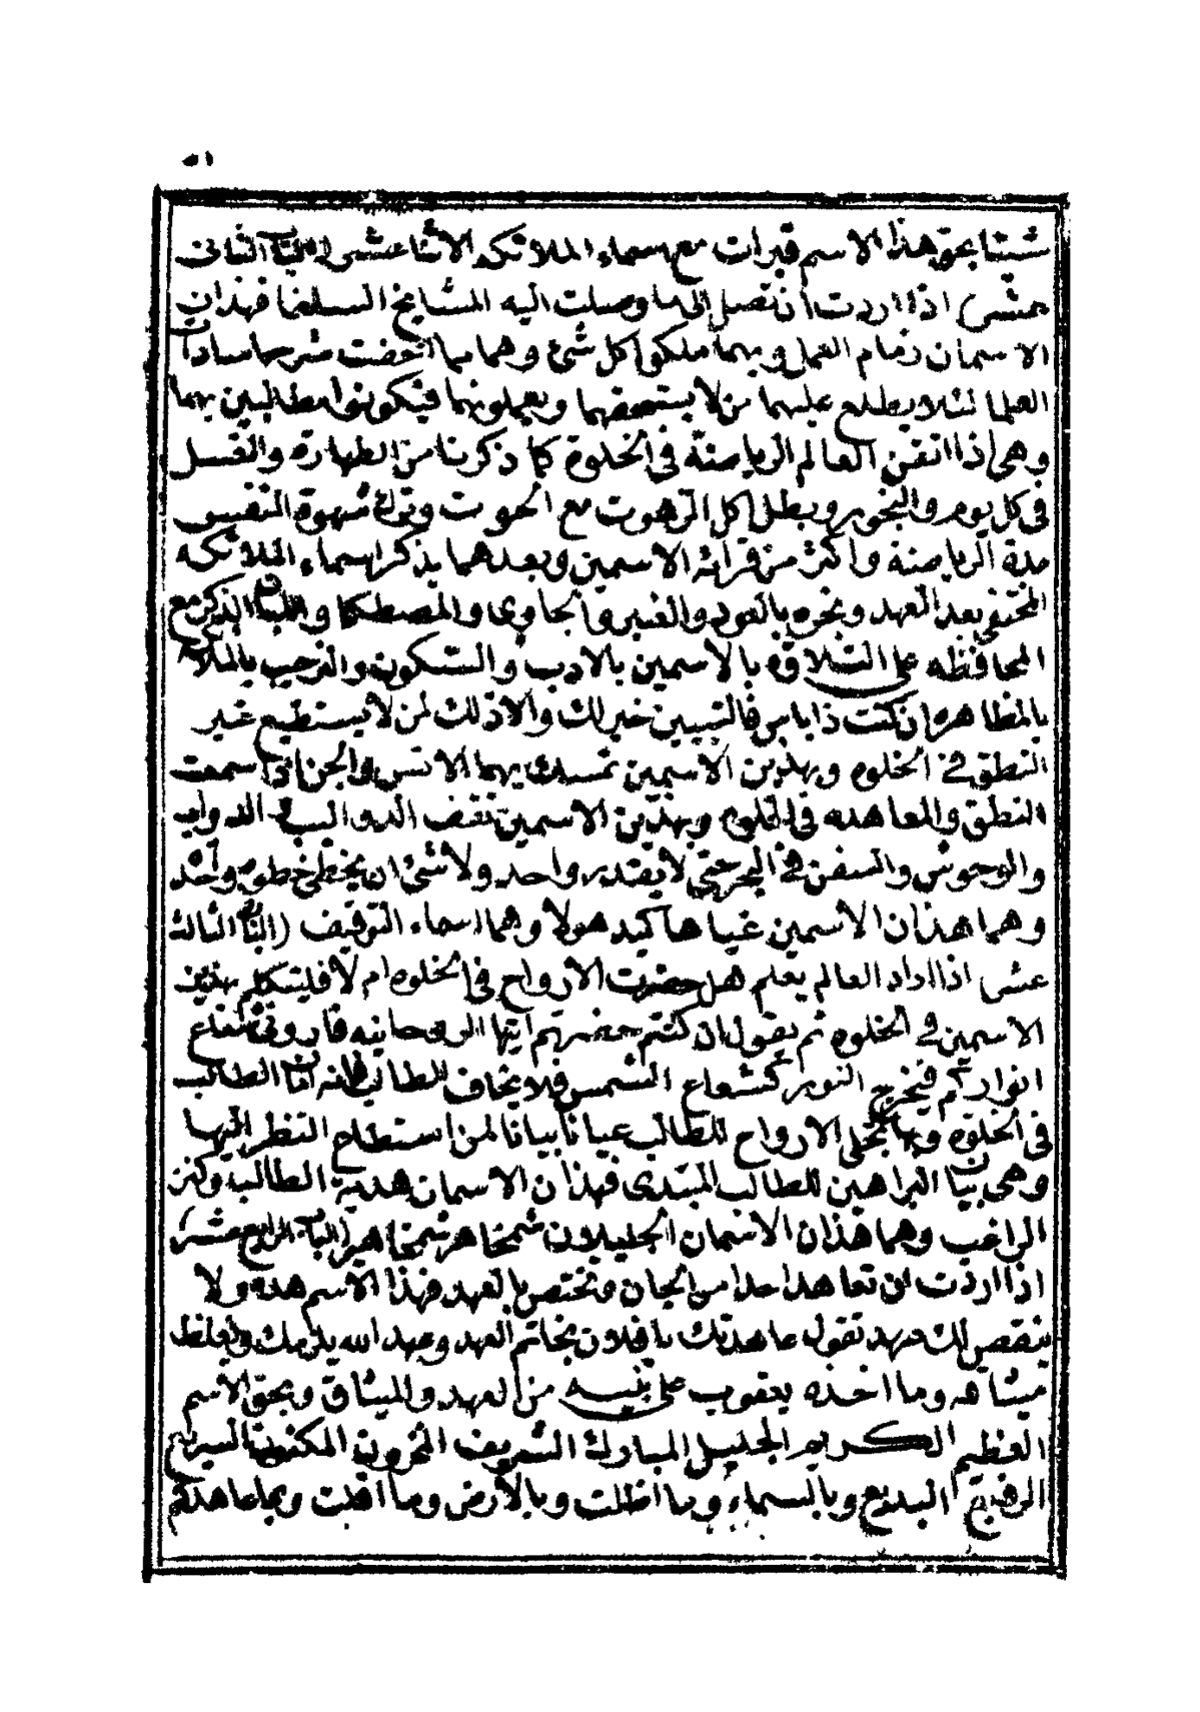 شيتا بحق هذا الاسم قبرات مع اسماء الملائكه الاثنا عشر (الباب الثاني
عشر) اذا اردت ان تصل الى ما وصلت اليه المشايخ السلفا فهذان
الاسمان زمام العمل وبهما ملكوا كل شئ وهما مما اخفت سرهما سادات
العلما لئلا يطلع عليهما من لا يستحقهما ويعملونهما فيكونوا مطالبين بهما
وهي اذا اتقن العالم الرياضة في الخلوة كما ذكرنا من الطهارة والغسل
في كل يوم والبخور ويبطل اكل الزهومت مع الحوت وترك شهوة النفس
مدة الرياضة واكثر من قرائة الاسمين وبعدهما يذكر اسماء الملائكه
المختفي بعد العهد وبخره بالعود والعنبر والجاوى والمصطكا واللبان الذكر مع
المحافظه على التلاوة بالاسمين بالادب والسكون والترحيب بالملائكه
بالمظاهره ان كنت ذا باس فالتبيين خير لك والا ذلك لمن لا يستطيع غير
النطق في الخلوه وبهذين الاسمين تمسك بهما الانس والجن اذا سمعت
النطق والمعاهده في الخلوه وبهذين الاسمين تقف الدوالیب الدواب
والوحوش والسفن في البحر حتى لا يقدر واحد ولا شئ ان يخطى خطوه واحد
وهما هذان الاسمين غياها كيد هولا وهما اسماء التوقيف (الباب الثالث
عشر اذا اراد العالم يعلم هل حضرت الارواح في الخلوه ام لا فليتكلم بهذين
الاسمين في الخلوه ثم يقول ان كنتم حضرتم ايتها الروحانيه فاروني شعاع
انواركم فيخرج النور كشعاع الشمس فلا يخاف الطالب فانه امان الطالب
في الخلوه وبها تتجلى الارواح للطالب عيانا بيانا لمن استطاع النظر اليها
وهي بيان البراهين للطالب المبتدى فهذان الاسمان هدية الطالب وكنز
الراغب وهما هذان الاسمان الجليلان شمخاهر شمخاهير (الباب الرابع عشر)
اذا اردت ان تعاهد احدا من الجان وتختص بالعهد فهذا الاسم هده ولا
ينقص لك عهد تقول عاهدتك يا فلان بخاتم العهد وعهد الله يلزمك
وما اخذه يعقوب على بنيه من العهد والميثاق وبحق الاسم
العظيم الكريم الجليل المبارك الشريف المخزون المكنون السريع
الرفيع البديع وبالسماء وما اظلت وبالارض وما اقلت وبما عاهدكم